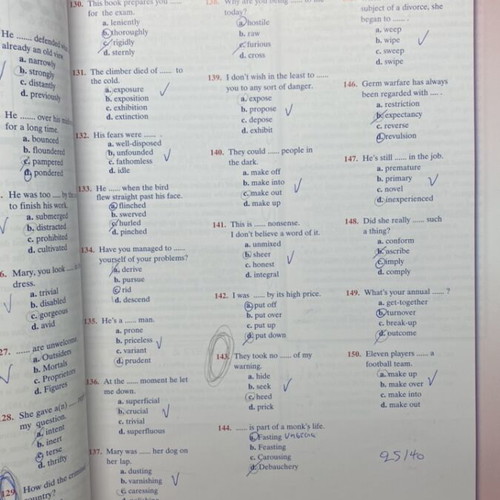 130. This book prepares you .....
for the exam.
a. leniently
b. thoroughly
c. rigidly
d. sternly
131. The climber died of ..... to
the cold.
a. exposure
b. exposition
c. exhibition
d. extinction
132. His fears were ..... .
a. well-disposed
b. unfounded
c. fathomless
d. idle
133. He ..... when the bird
flew straight past his face.
a. flinched
b. swerved
c. hurled
d. pinched
134. Have you managed to .....
yourself of your problems?
a. derive
b. pursue
c. rid
d. descend
135. He's a ..... man.
a. prone
b. priceless
c. variant
d. prudent
136. At the ..... moment he let
me down.
a. superficial
b. crucial
c. trivial
d. superfluous
137. Mary was ..... her dog on
her lap.
a. dusting
b. varnishing
c. caressing
today?
a. hostile
b. raw
c. furious
d. cross
139. I don't wish in the least to .....
you to any sort of danger.
a. expose
b. propose
c. depose
d. exhibit
140. They could ..... people in
the dark.
a. make off
b. make into
c. make out
d. make up
141. This is ..... nonsense.
I don't believe a word of it.
a. unmixed
b. sheer
c. honest
d. integral
142. I was ..... by its high price.
a. put off
b. put over
c. put up
d. put down
143. They took no ..... of my
warning.
a. hide
b. seek
c. heed
d. prick
144. ..... is part of a monk's life.
a. Fasting
b. Feasting
c. Carousing
d. Debauchery
subject of a divorce, she
began to ..... .
a. weep
b. wipe
c. sweep
d. swipe
146. Germ warfare has always
been regarded with ..... .
a. restriction
b. expectancy
c. reverse
d. revulsion
147. He's still ..... in the job.
a. premature
b. primary
c. novel
d. inexperienced
148. Did she really ..... such
a thing?
a. conform
b. ascribe
c. imply
d. comply
149. What's your annual ..... ?
a. get-together
b. turnover
c. break-up
d. outcome
150. Eleven players ..... a
football team.
a. make up
b. make over
c. make into
d. make out
He ..... defended
already an old
a. narrowly
b. strongly
c. distantly
d. previously
He ..... over his
for a long time.
a. bounced
b. floundered
c. pampered
d. pondered
He was too .....
to finish his work.
a. submerged
b. distracted
c. prohibited
d. cultivated
6. Mary, you look
dress.
a. trivial
b. disabled
c. gorgeous
d. avid
27. ..... are unwelcome
a. Outsiders
b. Mortals
c. Proprietors
d. Figures
28. She gave a(n)
my question.
a. intent
b. inert
c. terse
d. thrifty
129. How did the